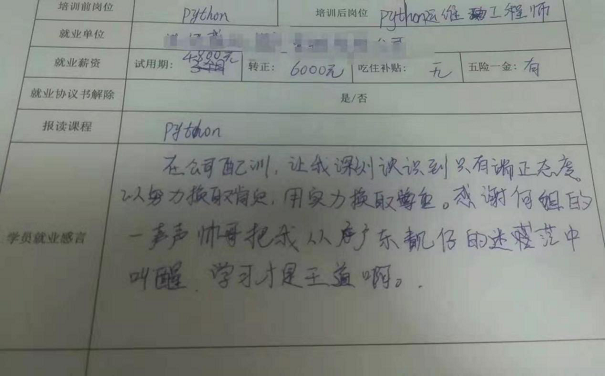 培训前岗位 python 培训后岗位 python运维工程师
就业单位 公司
就业薪资 试用期: 4800元 转正: 6000元 吃住补贴: 无 五险一金: 有
就业协议书解除 是/否
报读课程 python
在公司配训,让我深刻识识到只有端正态度
以努力换取肯定,用实力换取。感谢何姐的
学员就业感言
一声声帅哥把我从广东靓仔的迷中
叫醒,学习才是王道啊。